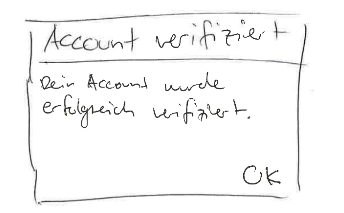 Account verifiziert
Dein Account wurde
erfolgreich verifiziert.
OK